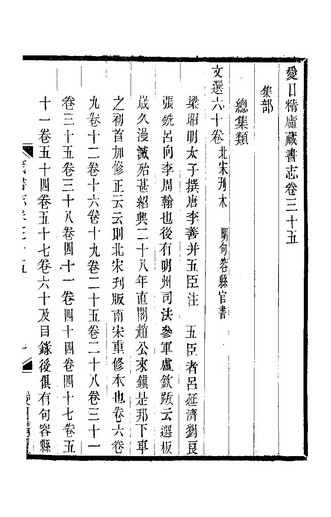 愛日精廬藏書志卷三十五
集部
總集類
文選六十卷 北宋刊本 明句容縣官書
梁昭明太子撰唐李善并五臣注 五臣者呂延濟劉良
張銑呂向李周翰也後有明州司法參軍盧欽跋云選板
歲久漫滅殆甚紹興二十八年直閣趙公來鎮是邦下車
之初首加修正云云則北宋刊版南宋重修本也卷六卷
九卷十二卷十六卷十九卷二十五卷二十八卷三十一
卷三十五卷三十八卷四十一卷四十四卷四十七卷五
十一卷五十四卷五十七卷六十及目錄後俱有句容縣